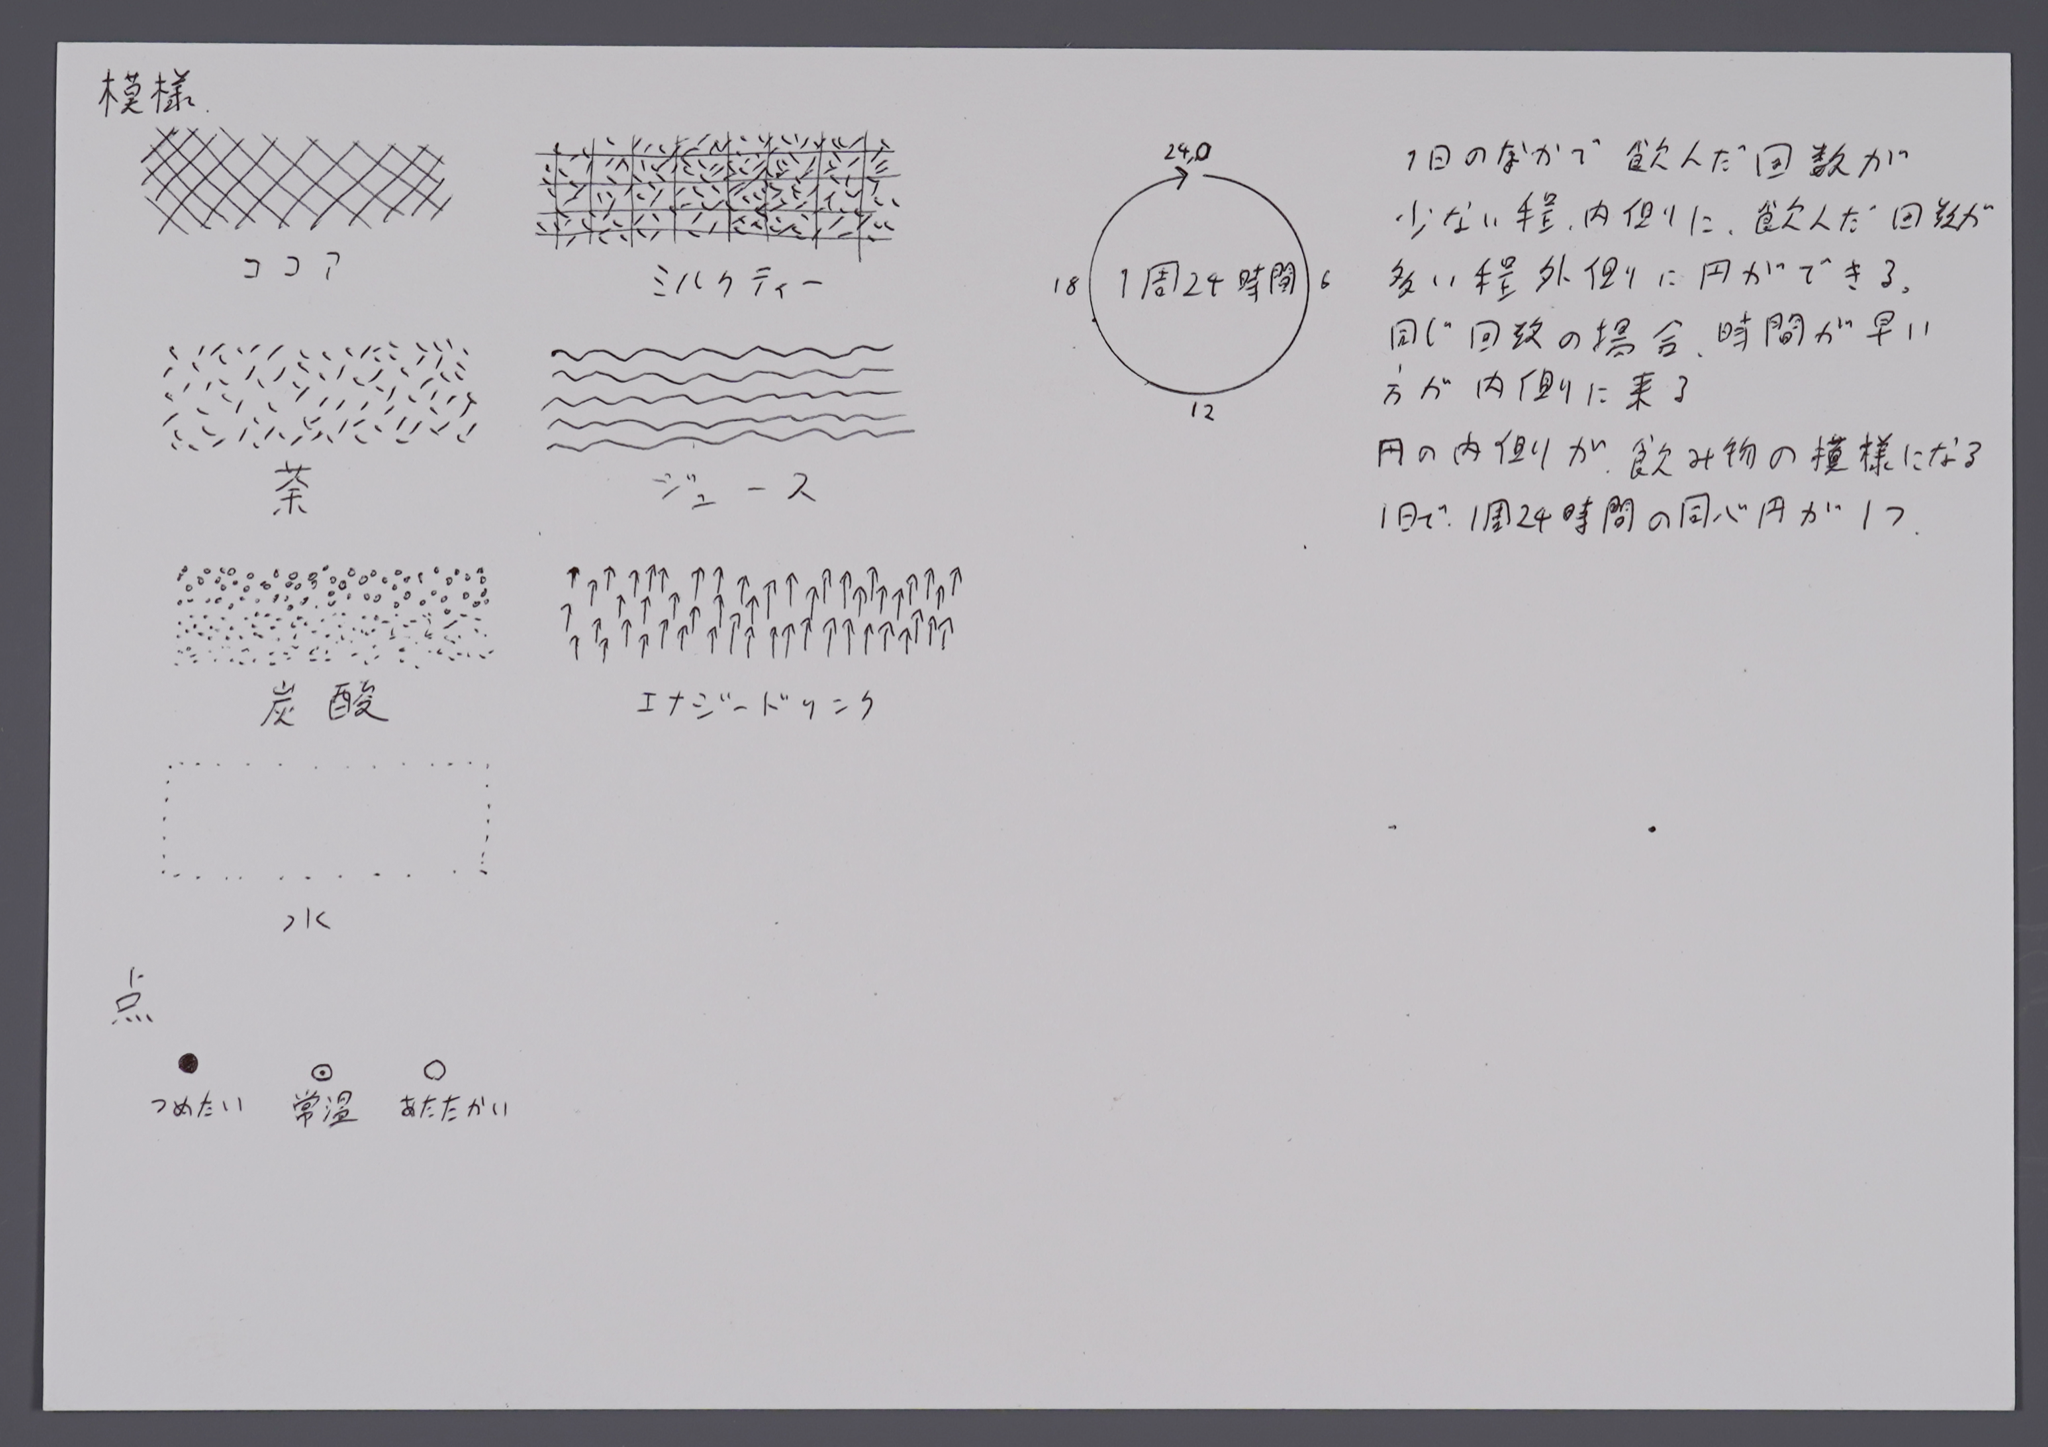 模様.
ココア
ミルクティー
茶
ジュース
炭酸
エナジードリンク
水
点
つめたい
常温
あたたかい
24,0
18
1周24時間
6
12
1日のなかで飲んだ回数が
少ない程、内側に、飲んだ回数が
多い程外側に円ができる。
同じ回数の場合、時間が早い
方が内側に来る
円の内側が、飲み物の模様になる
1日で、1周24時間の同心円が1つ.